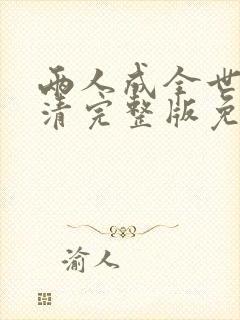 两人成全世
清完整版免
渝人